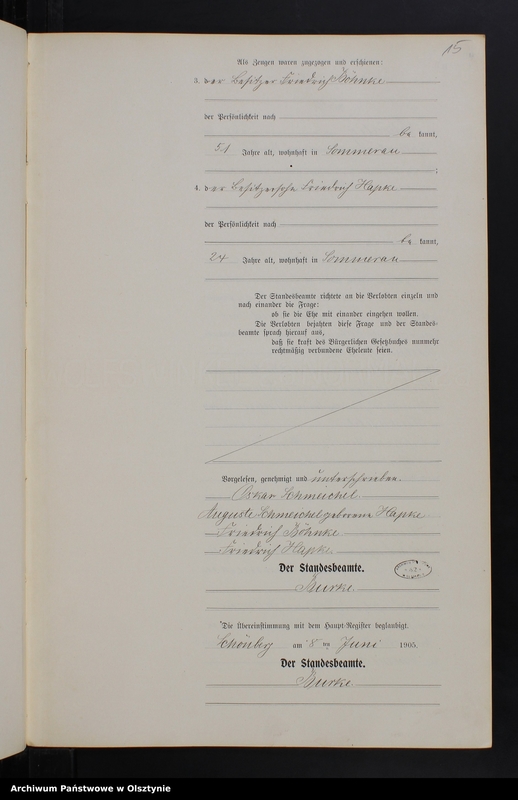 15
Als Zeugen waren zugezogen und erschienen:
3. der Besitzer Friedrich Böhnke
der Persönlichkeit nach
be kannt,
51 Jahre alt, wohnhaft in Sommerau
;
4. der Besitzersohn Friedrich Hapke
der Persönlichkeit nach
be kannt,
24 Jahre alt, wohnhaft in Sommerau
Der Standesbeamte richtete an die Verlobten einzeln und
nach einander die Frage:
ob sie die Ehe mit einander eingehen wollen.
Die Verlobten bejahten diese Frage und der Standes-
beamte sprach hierauf aus,
daß sie kraft des Bürgerlichen Gesetzbuches nunmehr
rechtmäßig verbundene Eheleute seien.
Vorgelesen, genehmigt und unterschrieben.
Oskar Schmeichel
Auguste Schmeichel geborene Hapke
Friedrich Böhnke
Friedrich Hapke
Der Standesbeamte.
Burke
Die Übereinstimmung mit dem Haupt-Register beglaubigt.
Schönberg am 8 ten Juni 1905.
Der Standesbeamte.
Burke
Archiwum Państwowe w Olsztynie